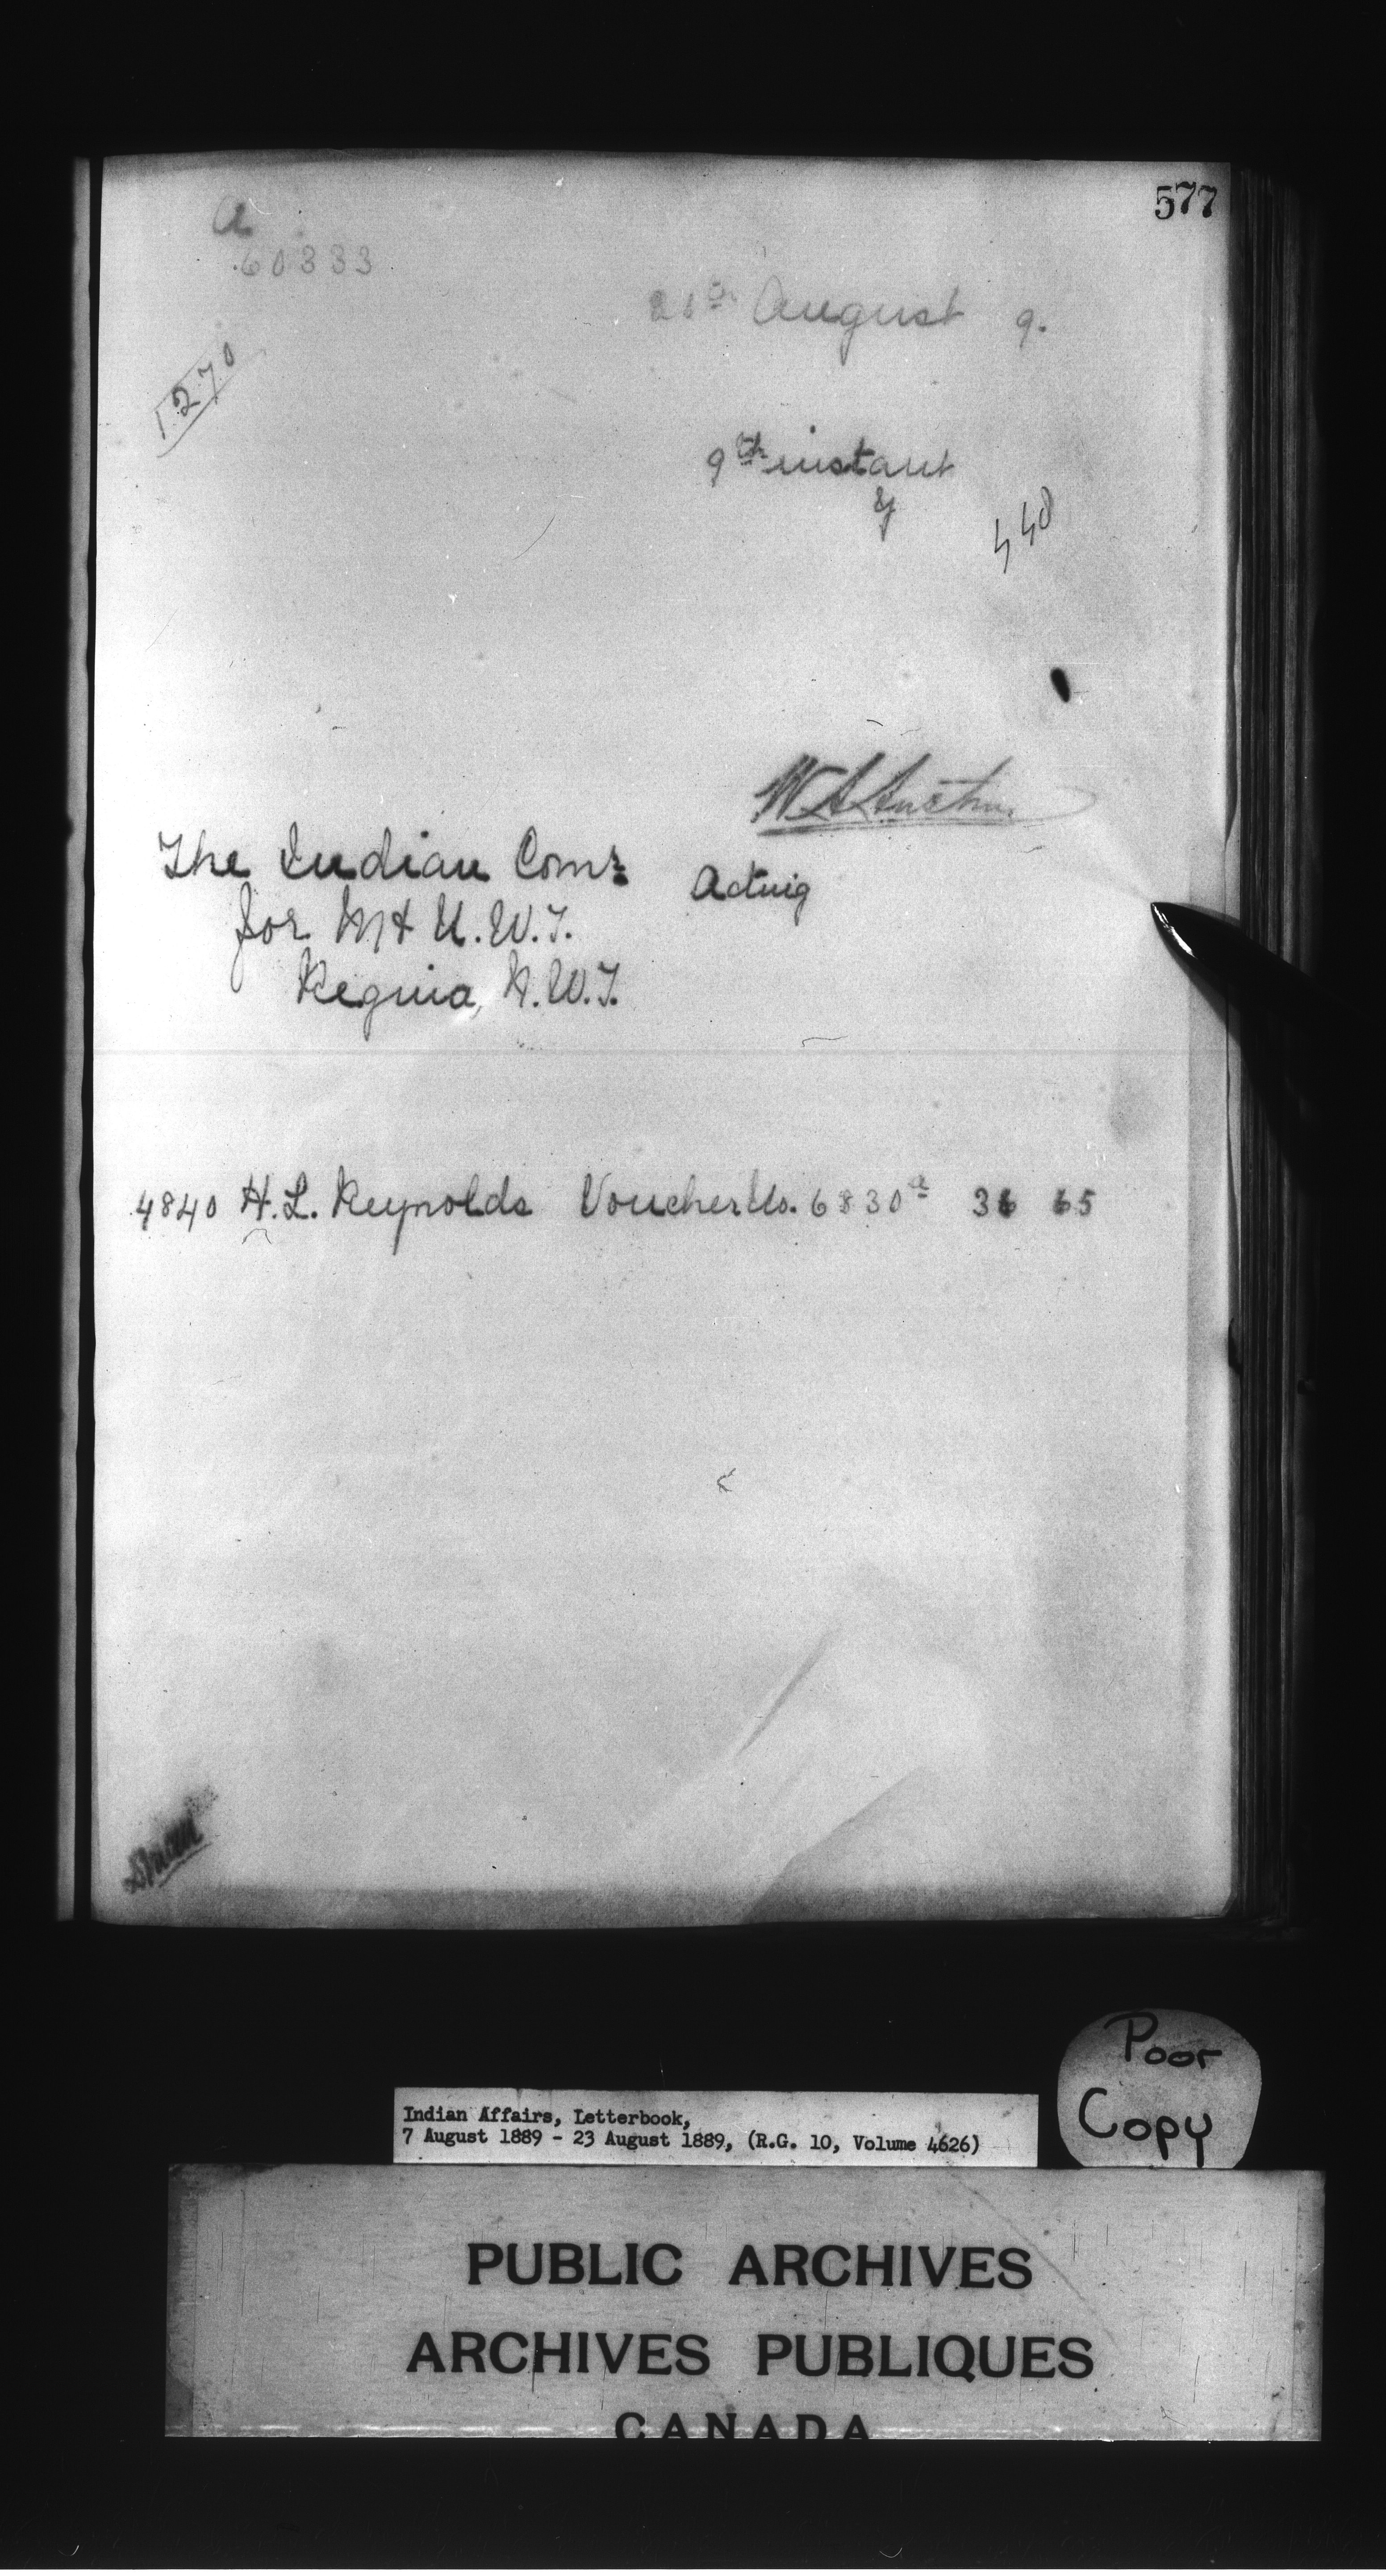 577
a
60333
August 9.
1270
9th instant
y
440
W A Austin
The Indian Comr
Acting
for M & N.W.T.
Regina, N.W.T.
4840 H. L. Reynolds Voucher No. 6830a 36 65
Poor
Copy
Indian Affairs, Letterbook,
7 August 1889 - 23 August 1889, (R.G. 10, Volume 4626)
PUBLIC ARCHIVES
ARCHIVES PUBLIQUES
CANADA